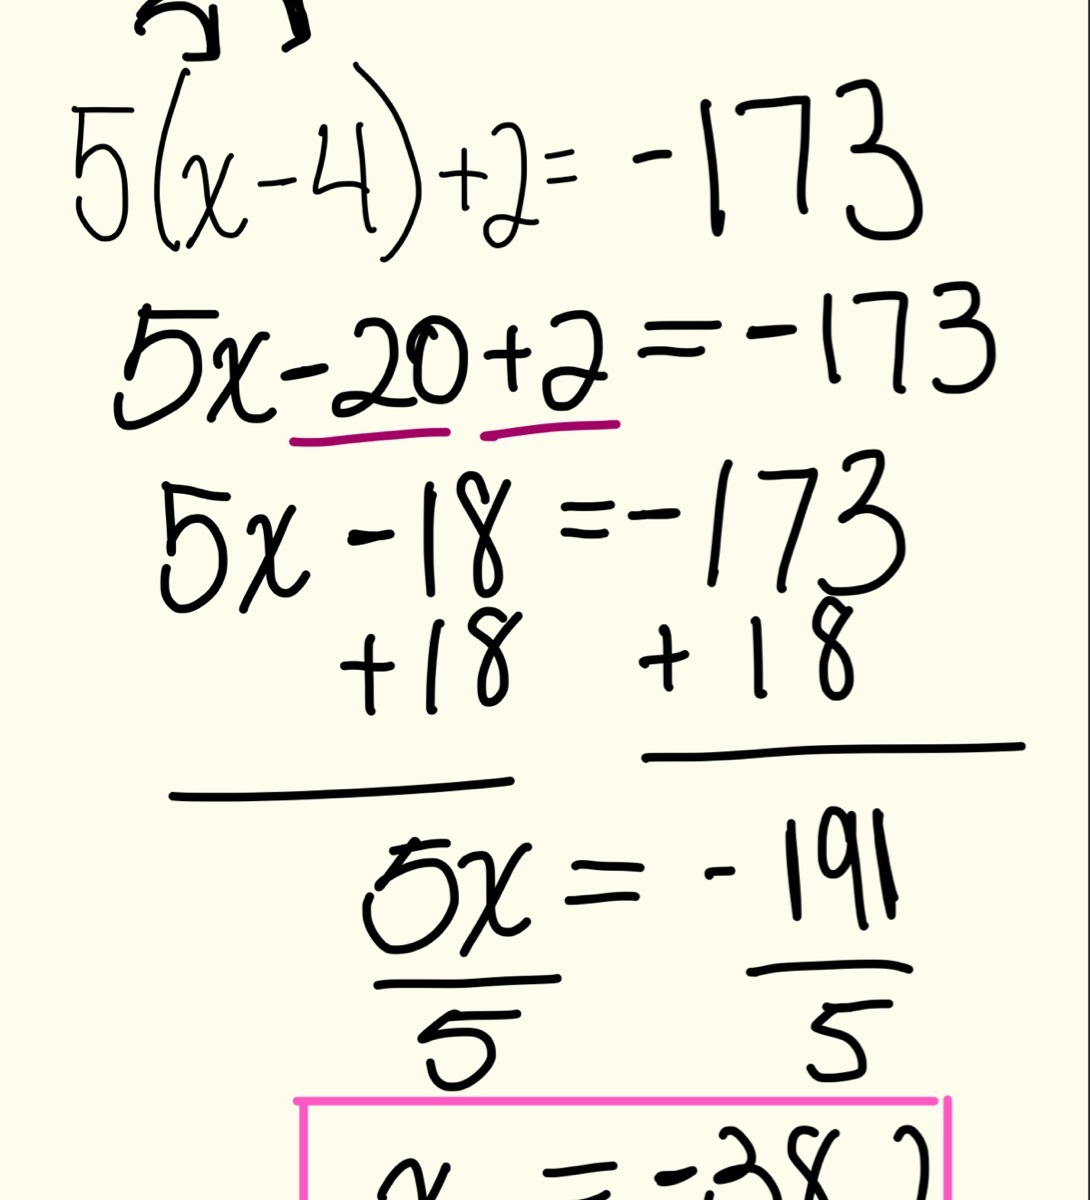 5(x-4)+2= -173
5x-20+2=-173
5x -18 =-173
+18 +18
5x = -191
5 5
x = -38.2